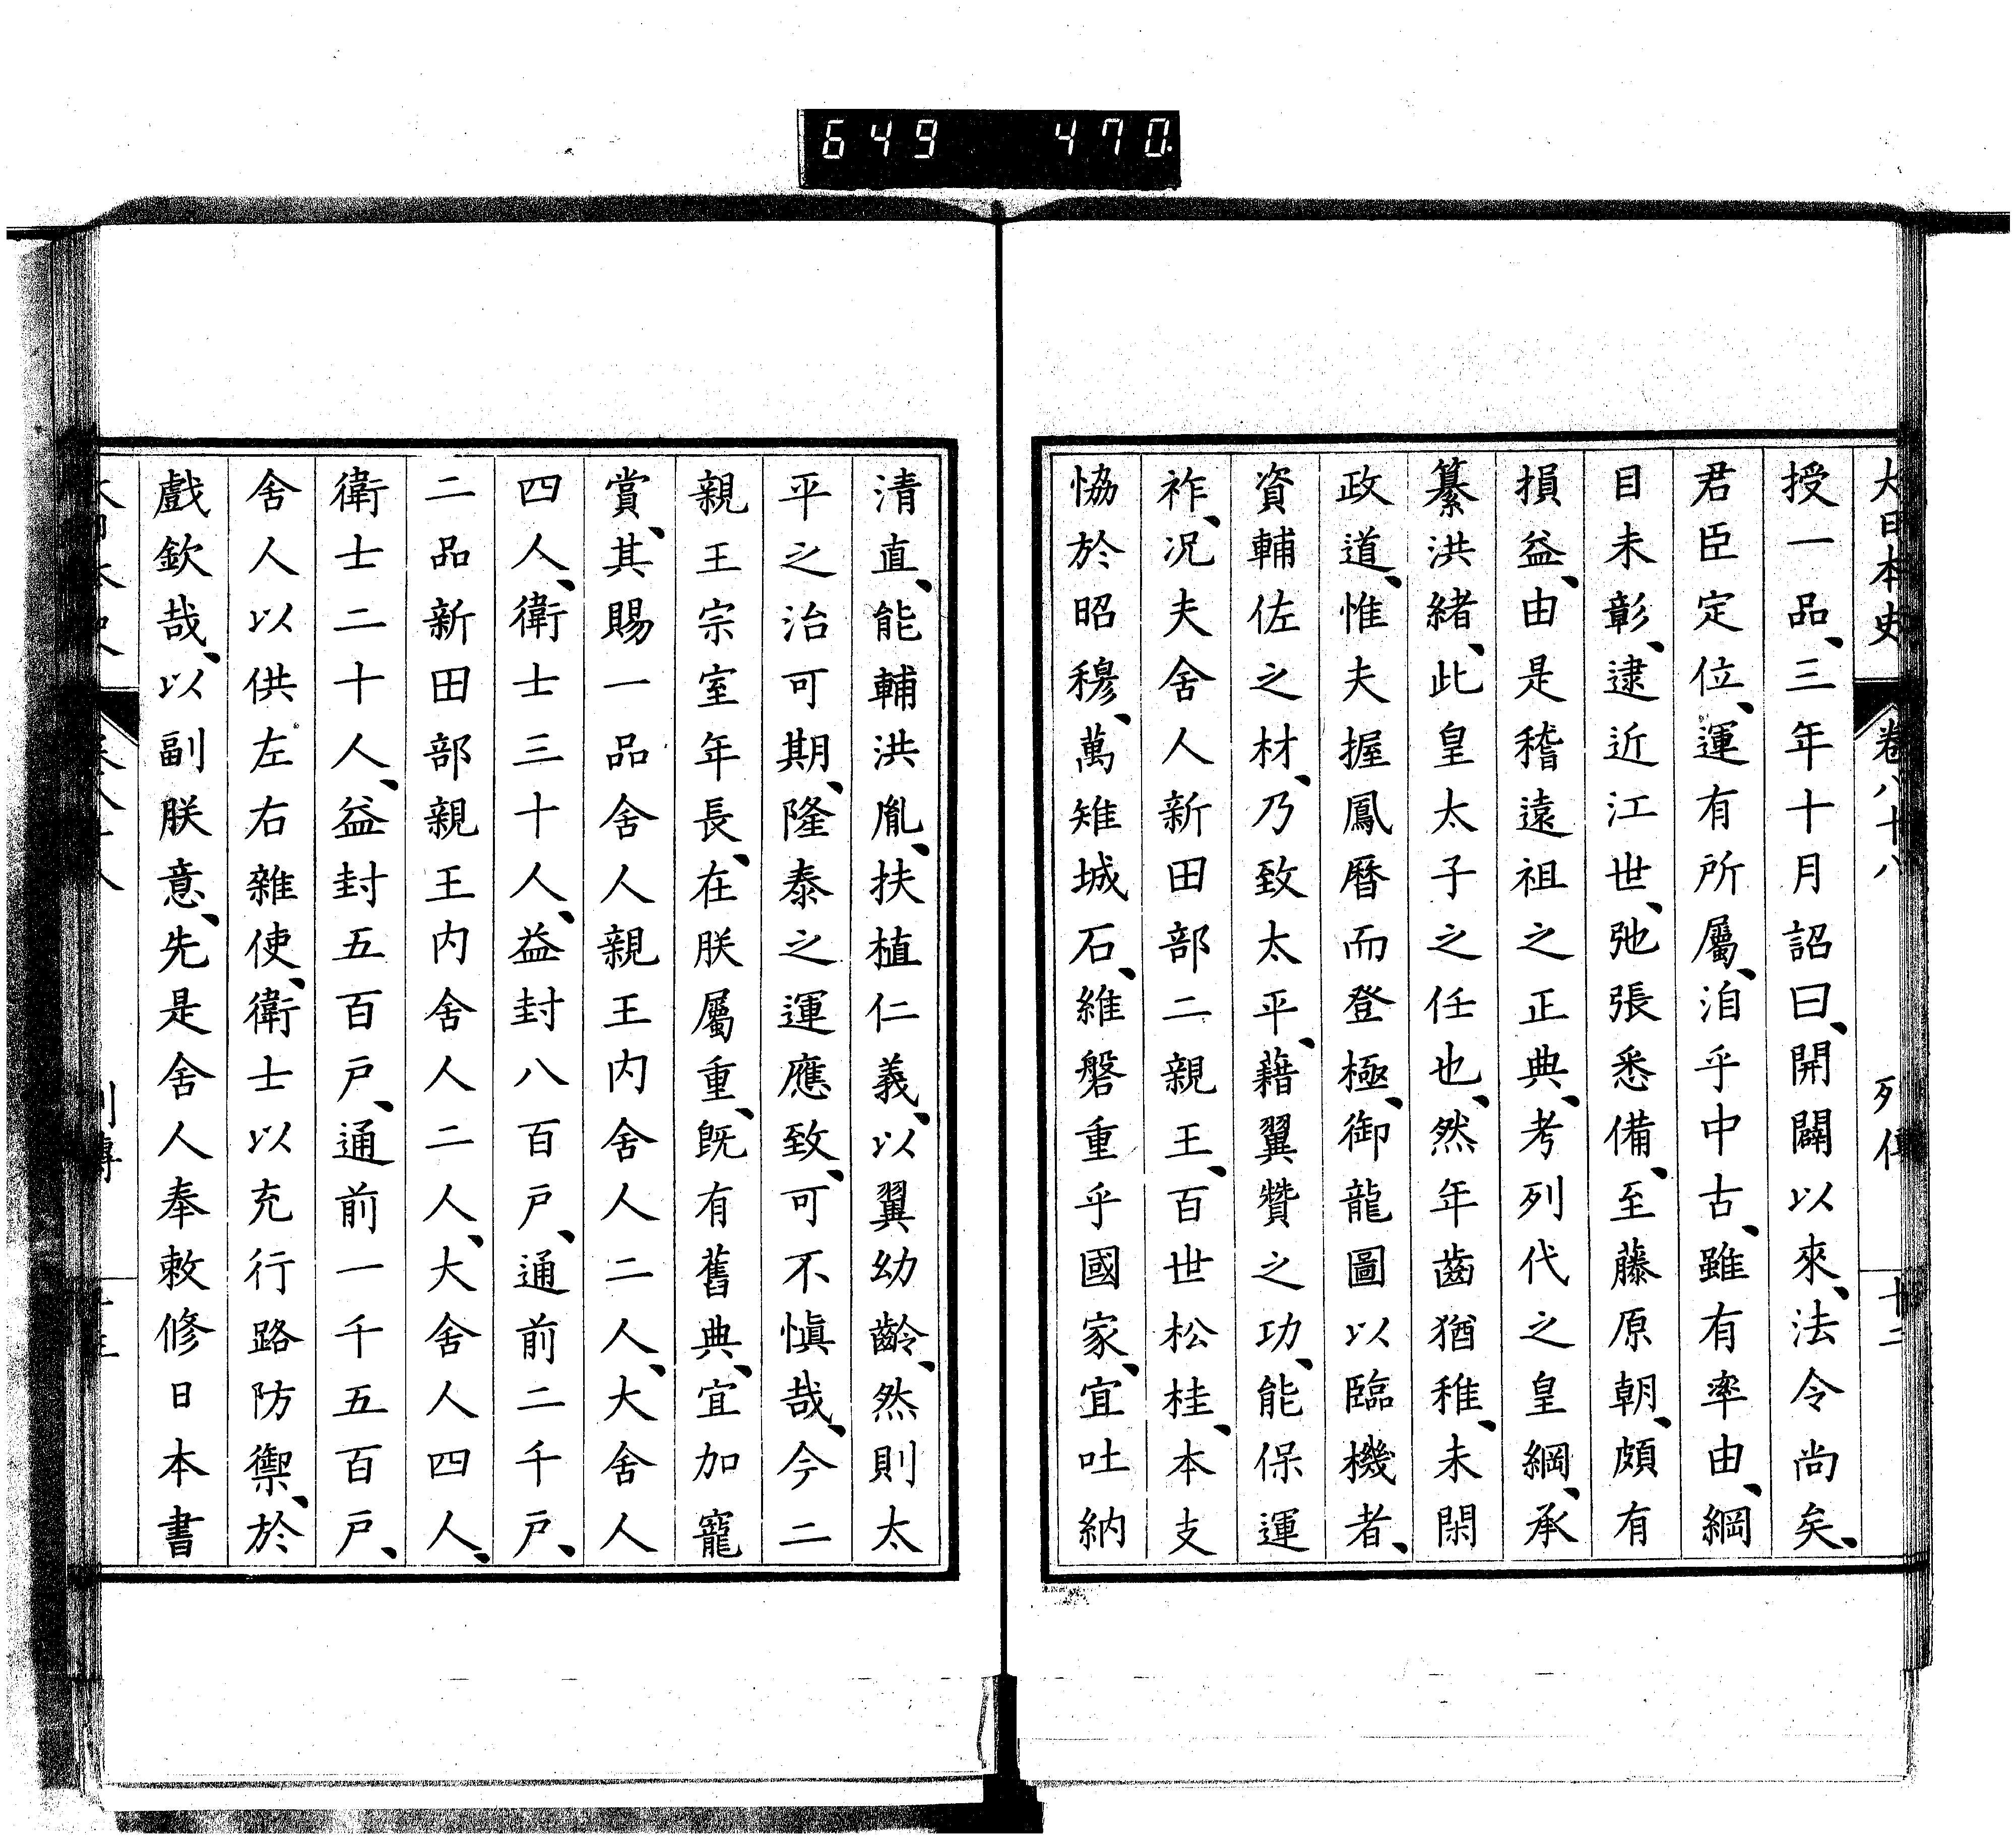 649 470
大日本史 卷八十八 列傳 十二
授一品、三年十月詔曰、開闢以來、法令尚矣、
君臣定位、運有所屬、洎乎中古、雖有率由、綱
目未彰、逮近江世、弛張悉備、至藤原朝、頗有
損益、由是稽遠祖之正典、考列代之皇綱、承
纂洪緒、此皇太子之任也、然年齒猶稚、未閑
政道、惟夫握鳳曆而登極、御龍圖以臨機者、
資輔佐之材、乃致太平、藉翼贊之功、能保運
祚、况夫舍人新田部二親王、百世松桂、本支
恊於昭穆、萬雉城石、維磐重乎國家、宜吐納
清直、能輔洪胤、扶植仁義、以翼幼齡、然則太
平之治可期、隆泰之運應致、可不慎哉、今二
親王宗室年長、在朕屬重、既有舊典、宜加寵
賞、其賜一品舍人親王内舍人二人、大舍人
四人、衛士三十人、益封八百戸、通前二千戸、
二品新田部親王内舍人二人、大舍人四人、
衛士二十人、益封五百戸、通前一千五百戸、
舍人以供左右雜使、衛士以充行路防禦、於
戲欽哉、以副朕意、先是舍人奉敕修日本書